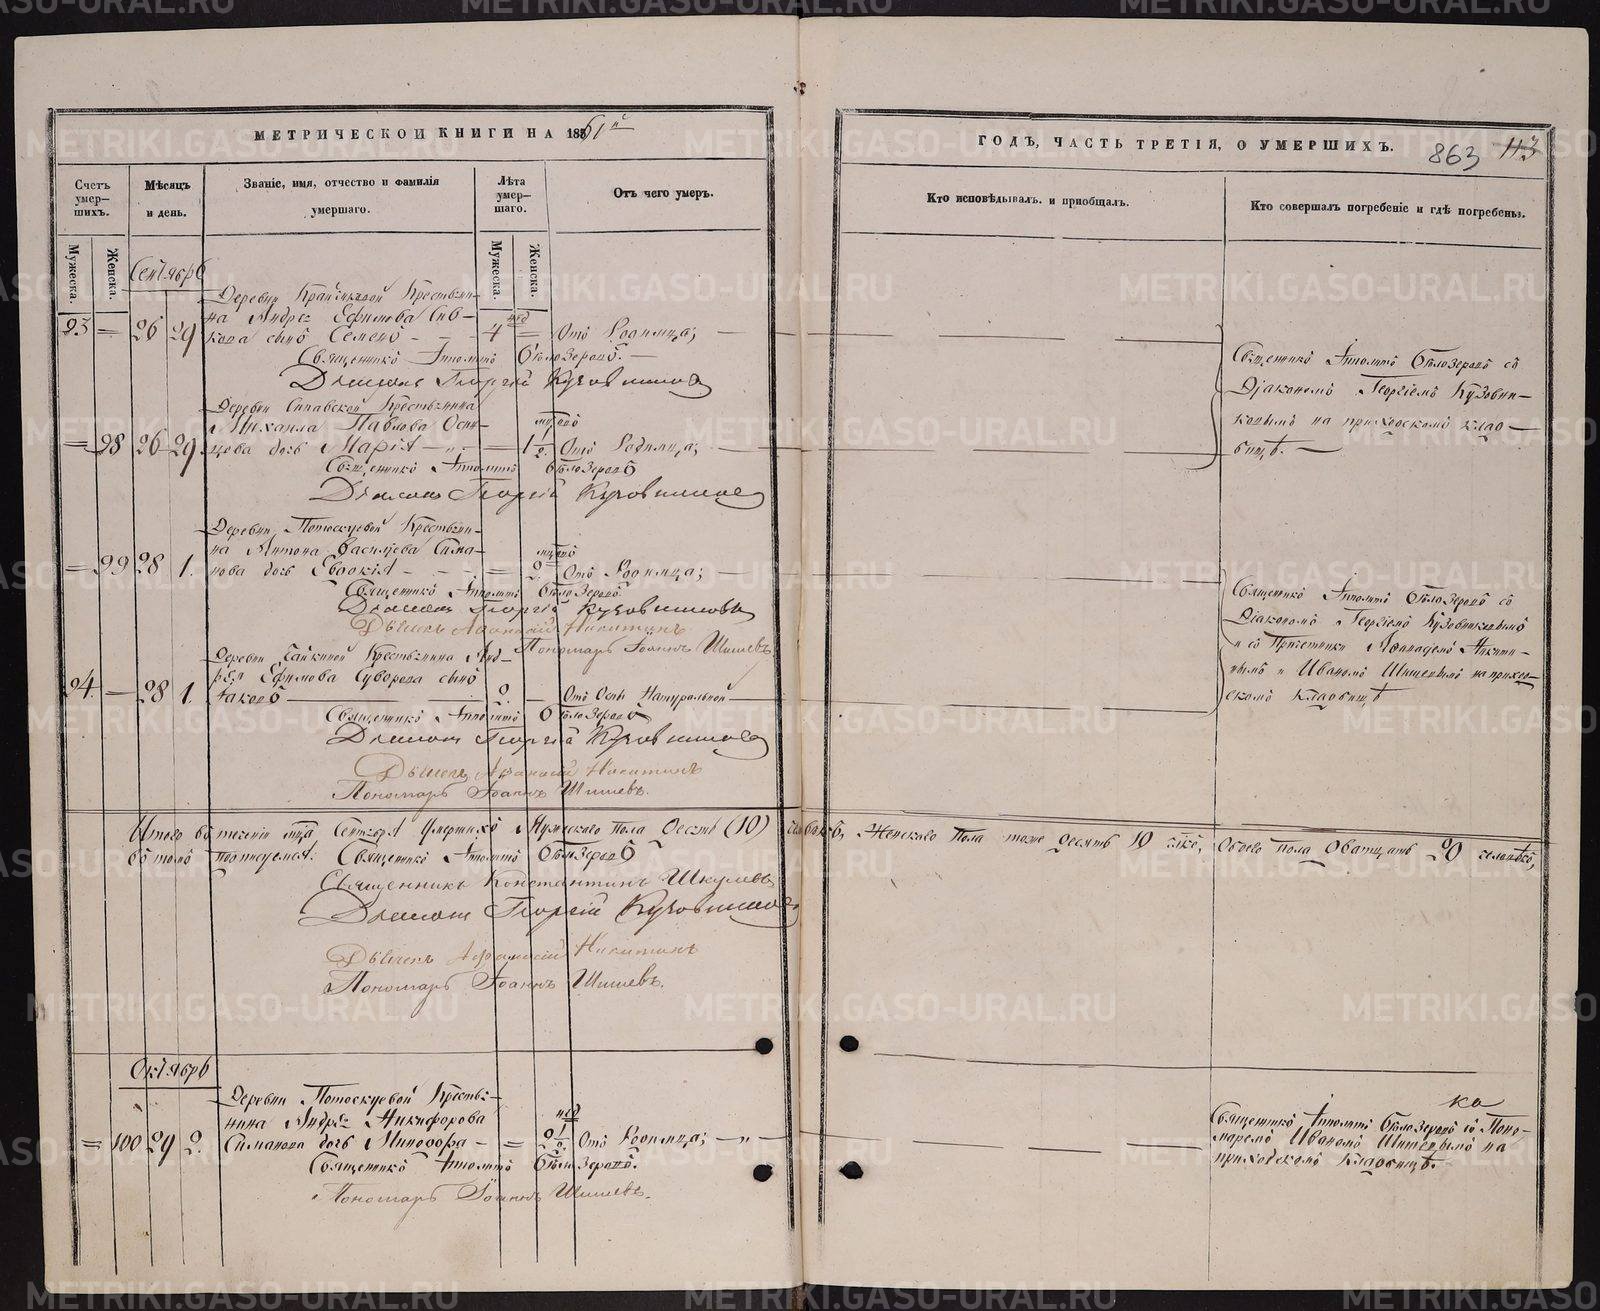 МЕТРИЧЕСКОЙ КНИГИ НА 1861й
ГОДЪ, ЧАСТЬ ТРЕТІЯ, О УМЕРШИХЪ.
863 113
Счетъ умер-шихъ.
Мѣсяцъ и день.
Званіе, имя, отчество и фамилія умершаго.
Лѣта умер-шаго.
Отъ чего умеръ.
Кто исповѣдывалъ. и пріобщалъ.
Кто совершалъ погребеніе и гдѣ погребены.
Мужеска.
Женска.
Мужеска.
Женска.
Сентябрь
Деревни Крестьяни-
на Андрея Ефимова
сынъ Семенъ
23 = 26 29 4 нед = Отъ Родимца;
Священникъ Ипполитъ Бѣлозеровъ.
Діаконъ Георгій Кузовниковъ
Священникъ Ипполитъ Бѣлозеровъ съ
Діакономъ Георгіемъ Кузовни-
ковымъ на приходскомъ клад-
бищѣ.
Деревни Крестьянина
Михаила Павлова Оси-
= 98 26 29 цова дочь Марія = 1 1/2 Отъ Родимца;
Священникъ Ипполитъ Бѣлозеровъ
Діаконъ Георгій Кузовниковъ
Деревни Потоскуевой Крестьяни-
на Антона Васильева Сима-
= 99 28 1. нова дочь Евдокія = 2. Отъ Родимца;
Священникъ Ипполитъ Бѣлозеровъ
Діаконъ Георгій Кузовниковъ
Дьячекъ Афанасій Никитинъ
Пономарь Іоаннъ Шишевъ
Священникъ Ипполитъ Бѣлозеровъ съ
Діакономъ Георгіемъ Кузовниковымъ
и съ Причетники Афанасіемъ Никити-
нымъ и Иваномъ Шишевымъ на приход-
скомъ Кладбищѣ
Деревни Крестьянина Анд-
рея Ефимова Суворова сынъ
24. — 28 1. Іаковъ 2. — Отъ Оспы Натуральной
Священникъ Ипполитъ Бѣлозеровъ
Діаконъ Георгій Кузовниковъ
Дьячекъ Афанасій Никитинъ
Пономарь Іоаннъ Шишевъ.
Итого въ теченіи мца Сентября Умершихъ Мужескаго Пола Десять (10) человѣкъ, Женскаго Пола тоже десять 10 члкъ, Обоего пола Двадцать 20 человѣкъ,
въ томъ подписуемся: Священникъ Ипполитъ Бѣлозеровъ
Священникъ Константинъ Шкулевъ
Діаконъ Георгій Кузовниковъ
Дьячекъ Афанасій Никитинъ
Пономарь Іоаннъ Шишевъ.
Октябрь
Деревни Потоскуевой Крестья-
нина Андрея Никифорова
= 100 29 2. Симанова дочь Минодора — = 2 1/2 нед Отъ Родимца;
Священникъ Ипполитъ Бѣлозеровъ.
Пономарь Іоаннъ Шишевъ.
Священникъ Ипполитъ Бѣлозеровъ съ Поно-
маремъ Иваномъ Шишевымъ на
приходскомъ Кладбищѣ.
METRIKI.GASO-URAL.RU